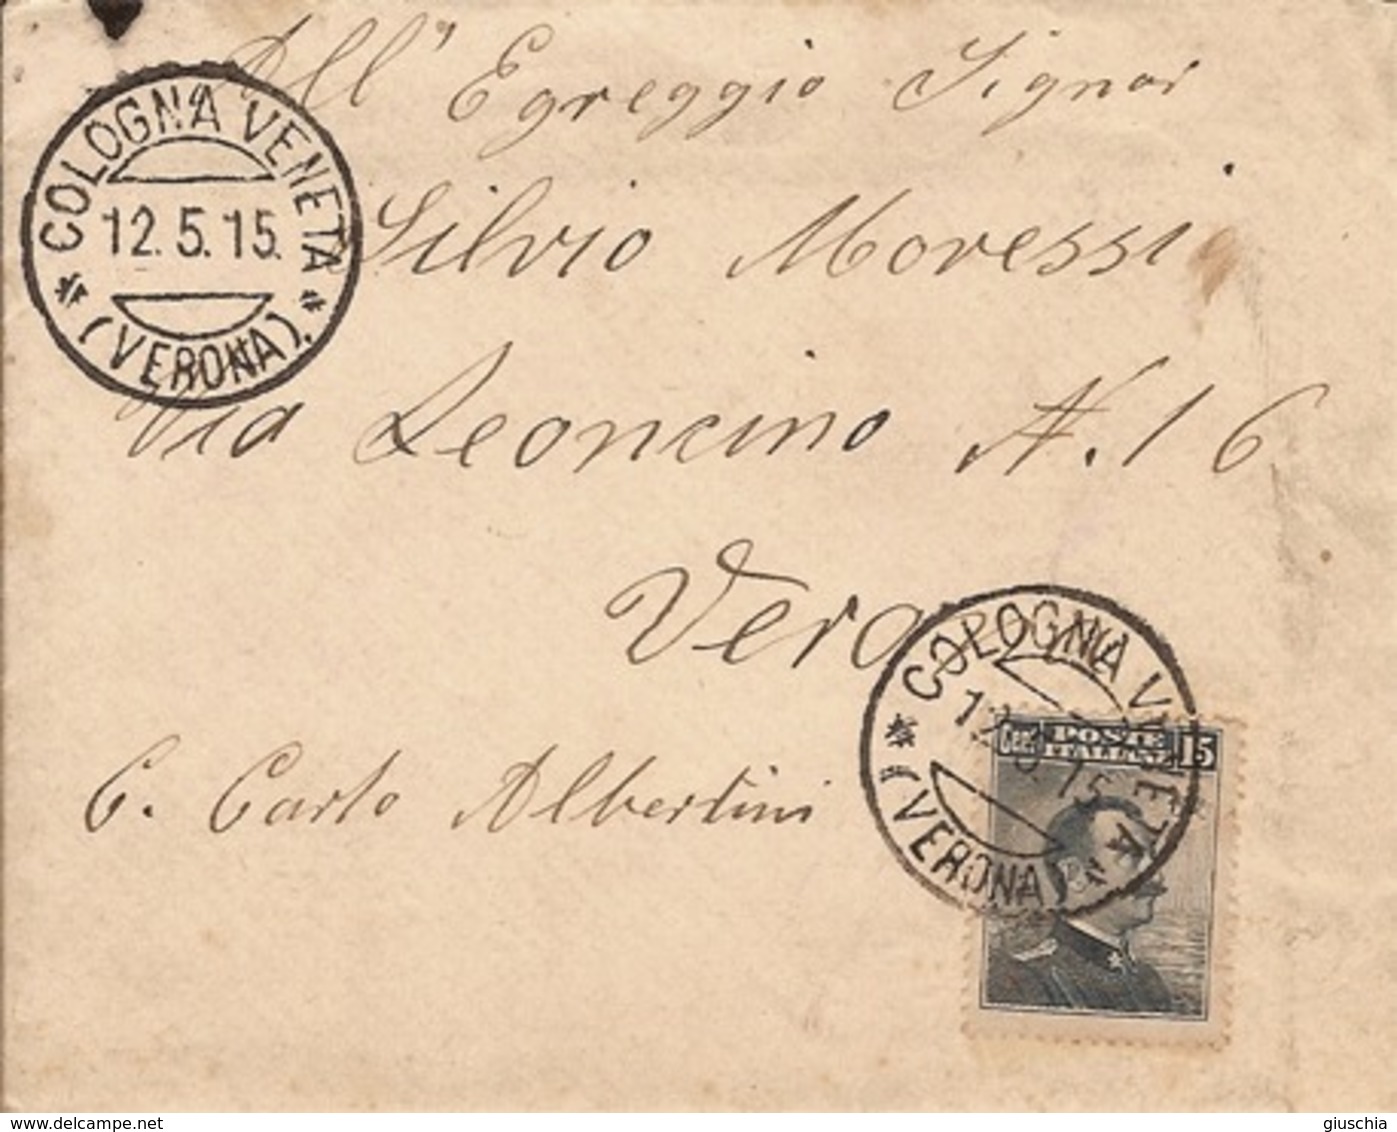 All' Egreggio Signor
Silvio Moressi
Via Leoncino N. 16
Verona
C. Carlo Albertini
COLOGNA VENETA
12.5.15.
(VERONA)
COLOGNA VENETA
12.5.15
(VERONA)
Cent POSTE ITALIANE 15
delcampe.net
giuschia